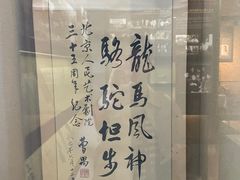 龍馬風神
駱駝坦步
北京人民艺术剧院
三十五周年纪念
曹禺